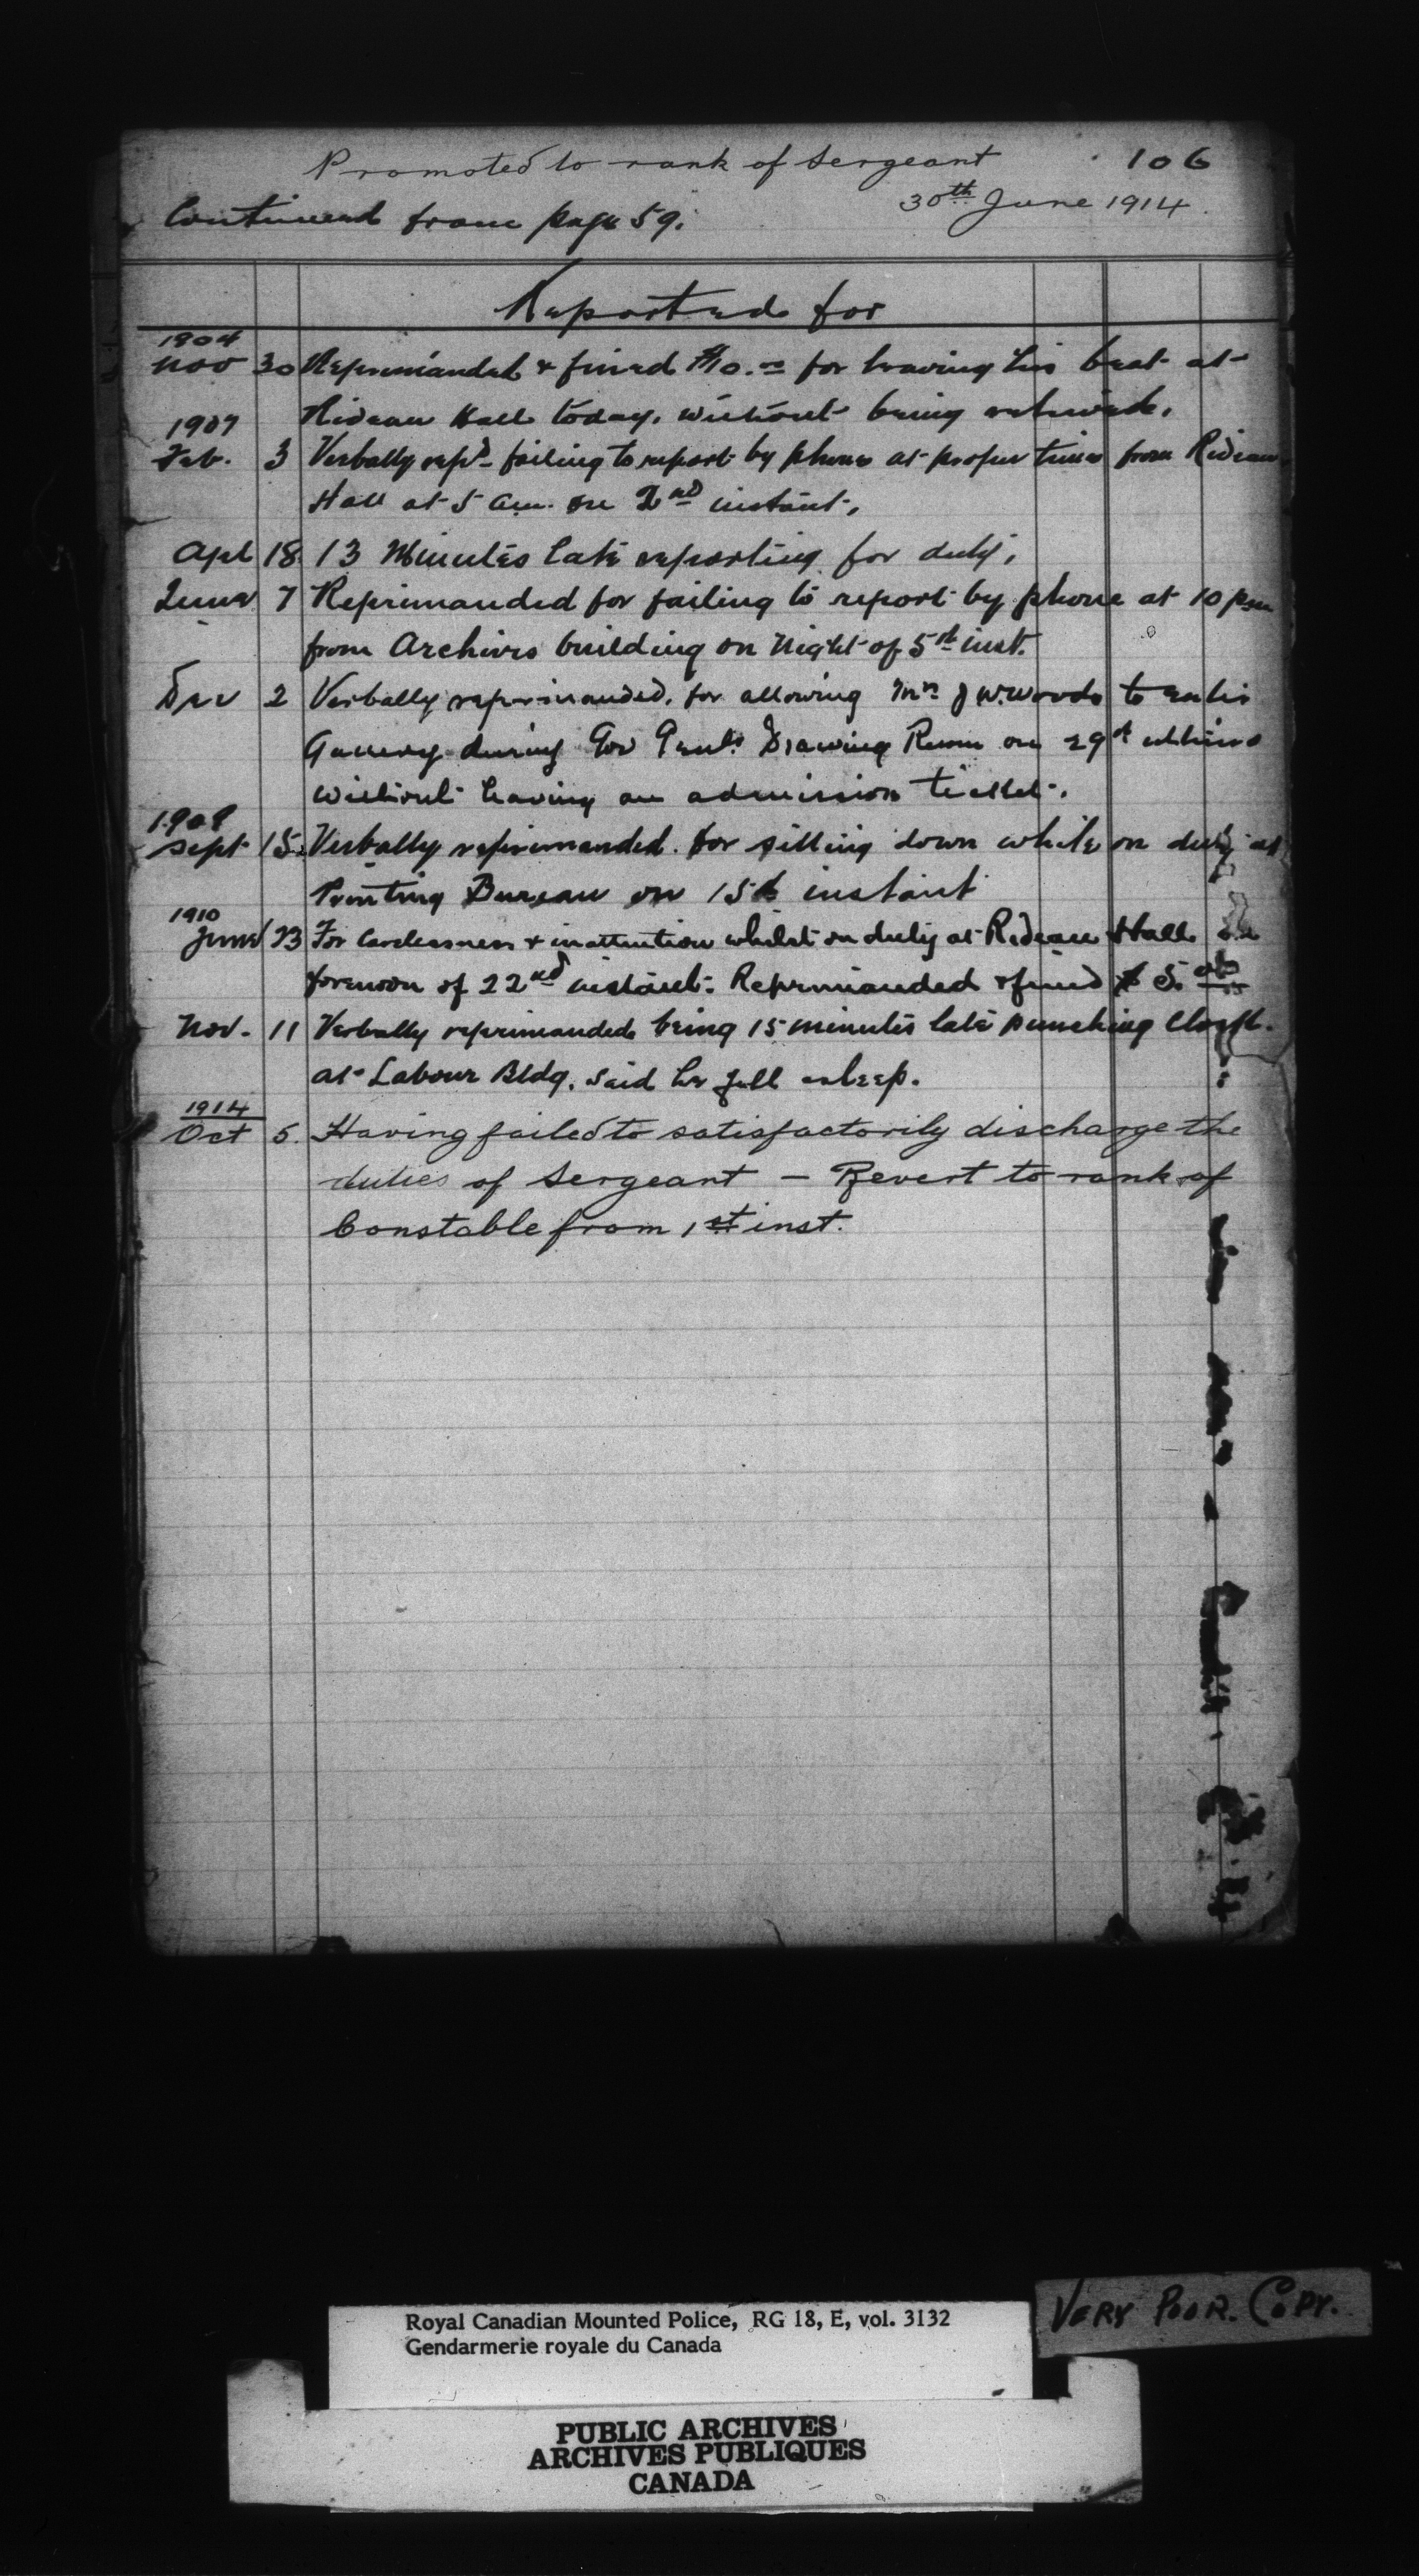 Promoted to rank of Sergeant 106
30th June 1914.
Continued from page 59.
Reported for
1904
Nov 30 Reprimanded & fined $10.00 for leaving his beat at
Rideau Hall today, without being relieved.
1907
Feb. 3 Verbally repd failing to report by phone at proper time from Rideau
Hall at 5 am. on 2nd instant.
Apl 18 13 Minutes late reporting for duty.
June 7 Reprimanded for failing to report by phone at 10 pm
from Archives building on night of 5th inst.
Dec 2 Verbally reprimanded, for allowing Mrs J W. Woods to enter
Gallery during Gov Genls Drawing Room on 29th ultimo
without having an admission ticket.
1909
Sept 15 Verbally reprimanded for sitting down while on duty at
Printing Bureau on 15th instant
1910
June 23 For carelessness & inattention whilst on duty at Rideau Hall
forenoon of 22nd instant. Reprimanded & fined $5.00
Nov. 11 Verbally reprimanded being 15 minutes late punching Clock.
at Labour Bldg. said he fell asleep.
1914
Oct 5. Having failed to satisfactorily discharge the
duties of Sergeant — Revert to rank of
Constable from 1st inst.
VERY POOR. COPY.
Royal Canadian Mounted Police, RG 18, E, vol. 3132
Gendarmerie royale du Canada
PUBLIC ARCHIVES
ARCHIVES PUBLIQUES
CANADA